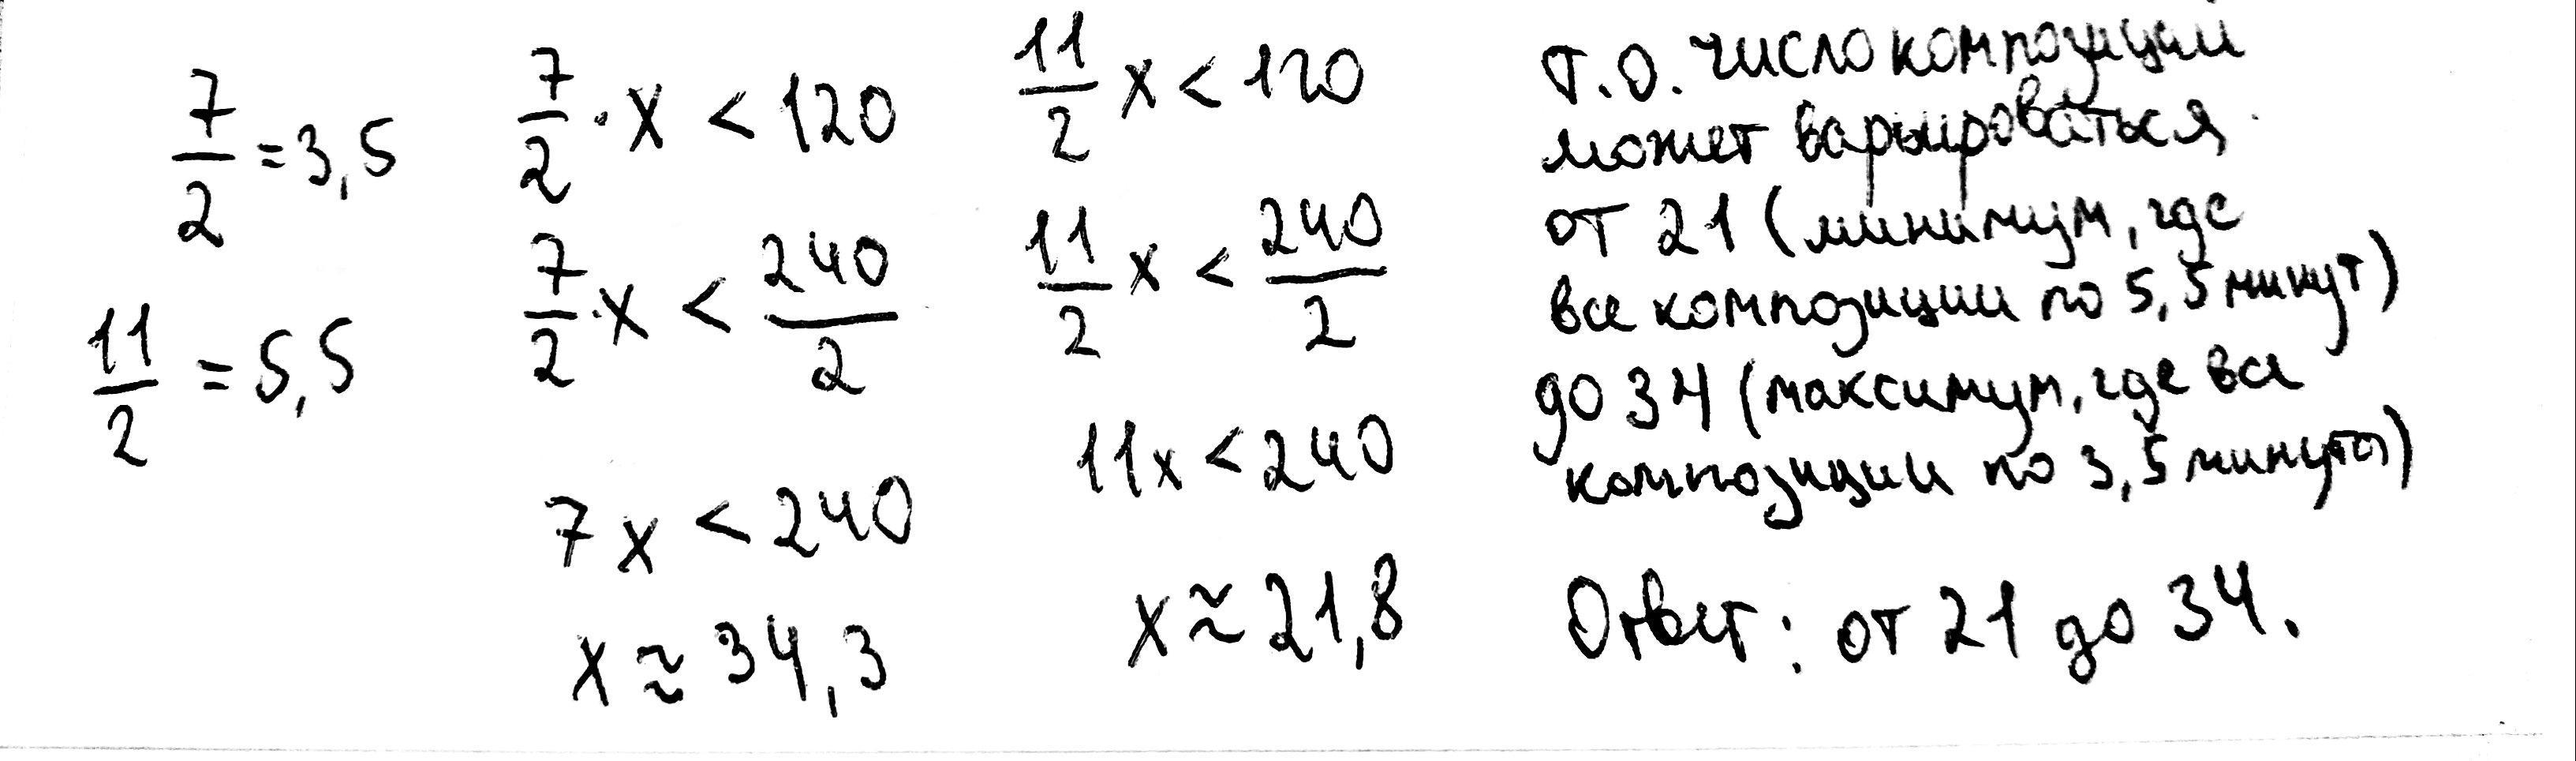 7/2 = 3,5
11/2 = 5,5
7/2 · x < 120
7/2 · x < 240/2
7x < 240
x ≈ 34,3
11/2 x < 120
11/2 x < 240/2
11x < 240
x ≈ 21,8
Т.О. число композиций
может варьироваться
от 21 (минимум, где
все композиции по 5,5 минут)
до 34 (максимум, где все
композиции по 3,5 минуты)
Ответ: от 21 до 34.